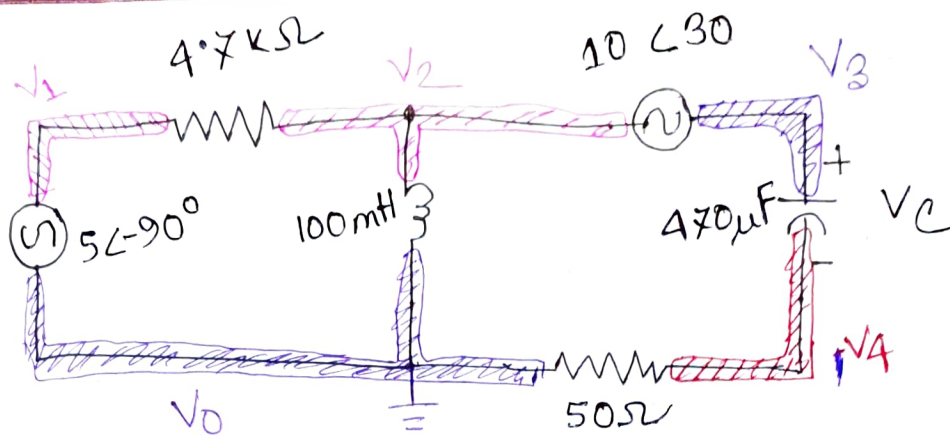 4.7KΩ
10 <30
V1
V2
V3
+
5<-90°
100mH
470μF
VC
-
V4
V0
50Ω